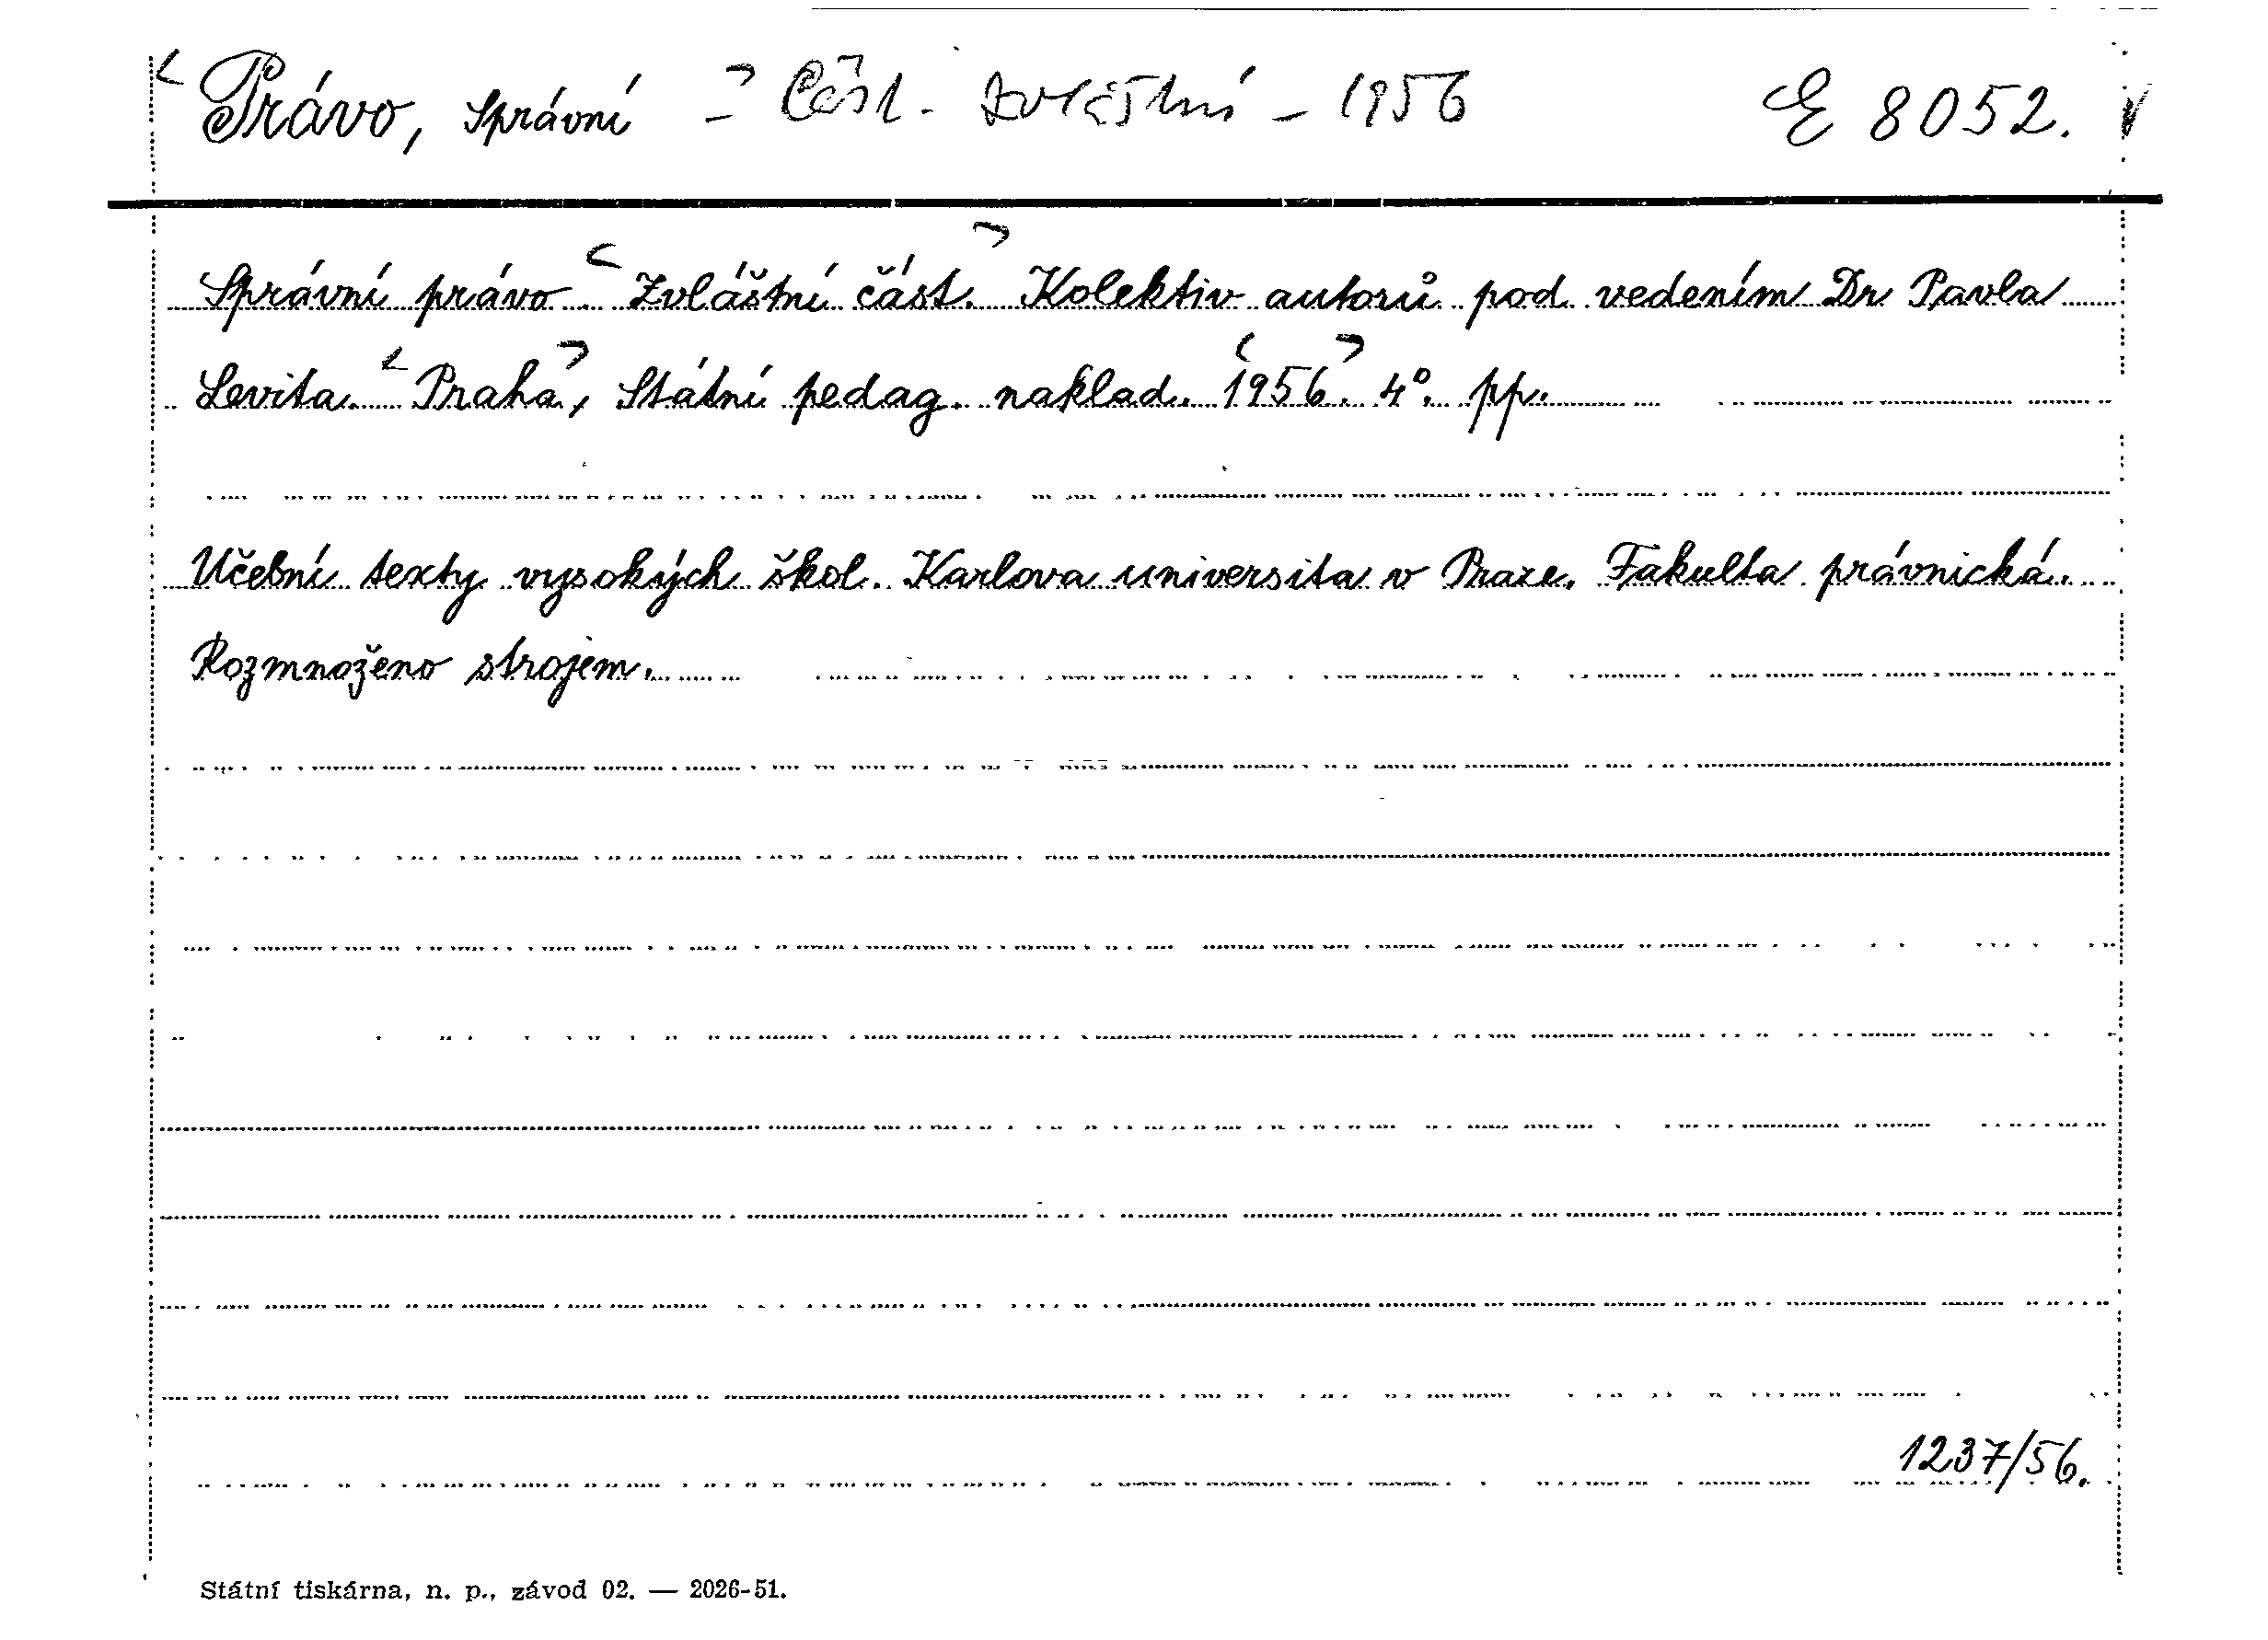 Právo, správní - Část. zvláštní - 1956 E 8052.
Správní právo. Zvláštní část. Kolektiv autorů pod vedením Dr Pavla
Levita. Praha, Státní pedag. naklad. 1956. 4°. pp.
Učební texty vysokých škol. Karlova universita v Praze. Fakulta právnická.
Rozmnoženo strojem.
1237/56.
Státní tiskárna, n. p., závod 02. — 2026-51.